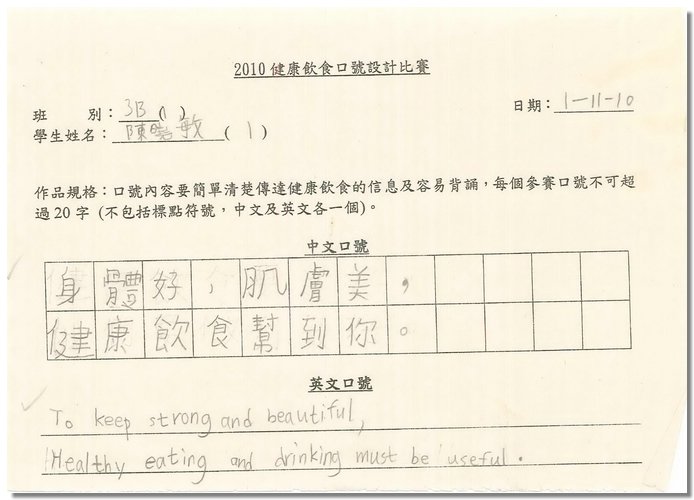 2010 健康飲食口號設計比賽
班 別：3B (1)
日期：1-11-10
學生姓名：陳曉敏 (1)
作品規格：口號內容要簡單清楚傳達健康飲食的信息及容易背誦，每個參賽口號不可超
過20字 (不包括標點符號，中文及英文各一個)。
中文口號
身體好，肌膚美，
健康飲食幫到你。
英文口號
To keep strong and beautiful,
Healthy eating and drinking must be useful.